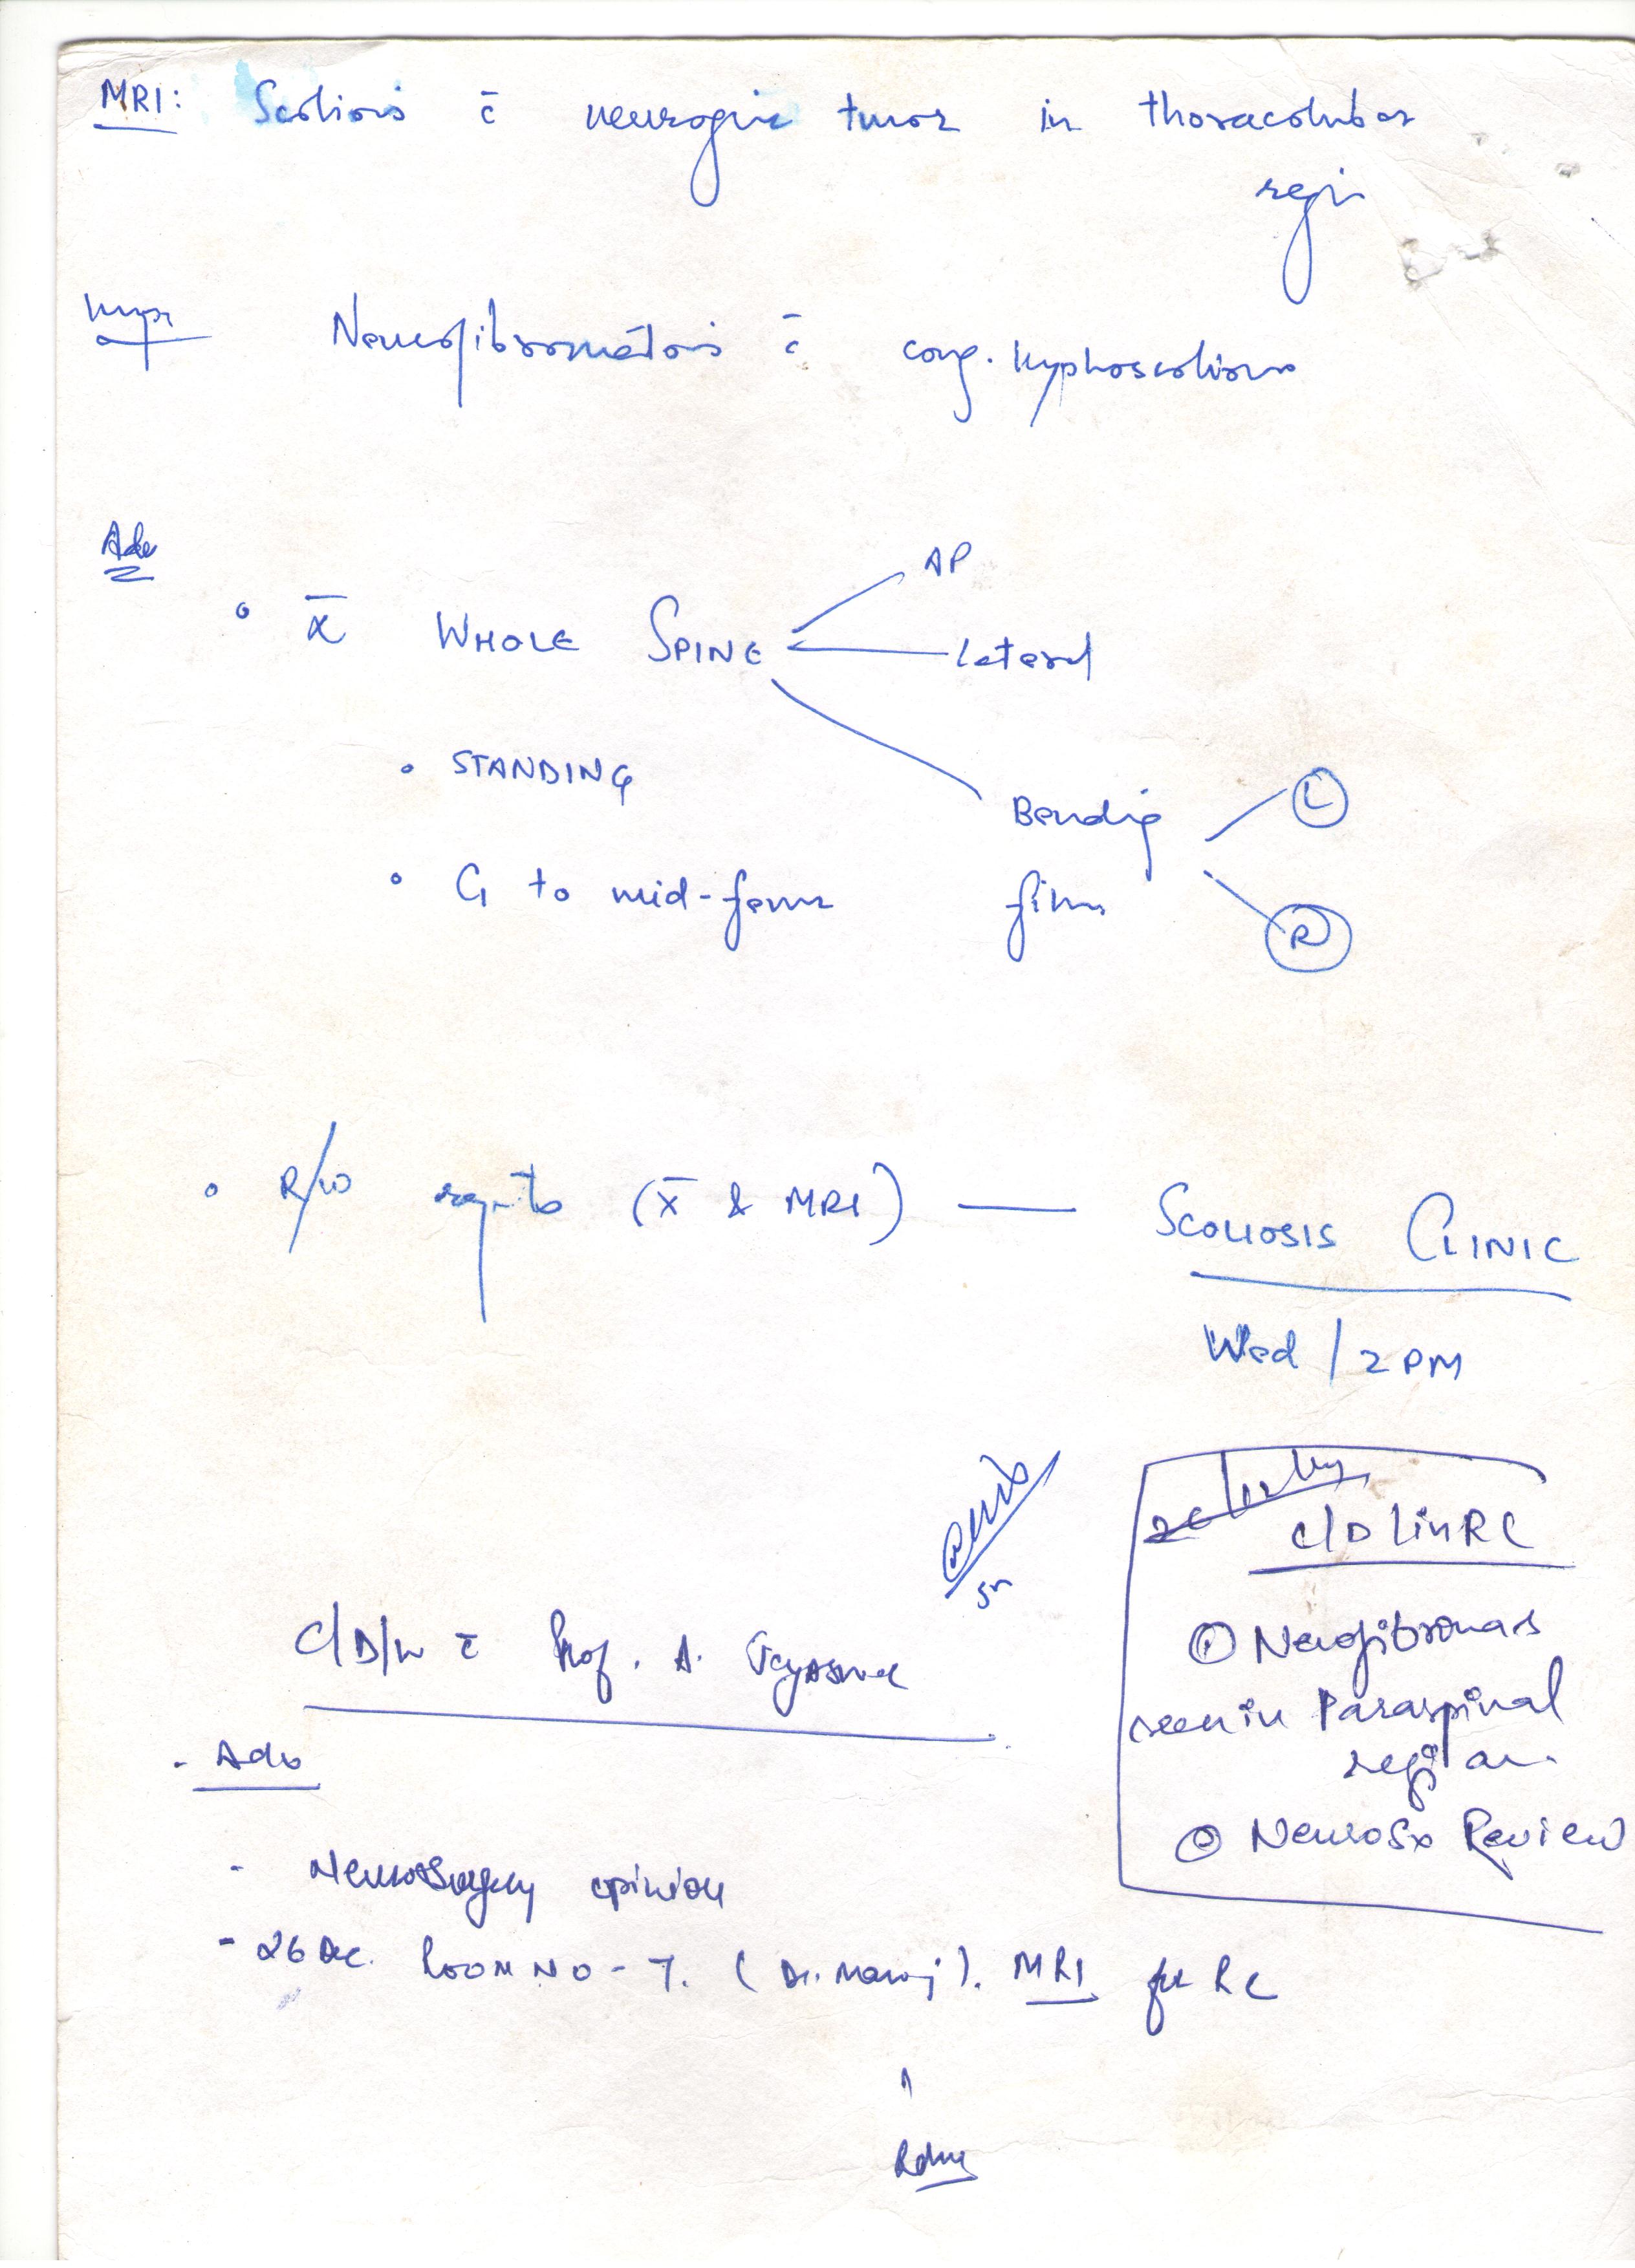 MRI: Scoliosis c̄ neurogenic tumor in thoracolumbar
region
Impr Neurofibromatosis c̄ cong. kyphoscoliosis
Adv
AP
• X̄ WHOLE SPINE Lateral
• STANDING
Bending L
• C1 to mid-femur films R
• R/w reports (X̄ & MRI) — SCOLIOSIS CLINIC
Wed / 2 PM
SR
C/D/w c̄ Prof. A.
- Adv
- Neurosurgery opinion
- 26 Dec. ROOM NO - 7. (Dr. Manoj). MRI for RC
C/D in RC
① Neurofibromas
seen in Paraspinal
region.
② NeuroSx Review